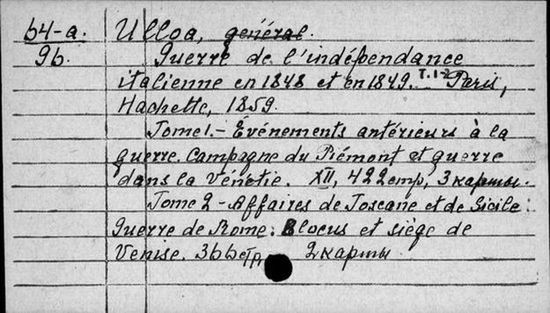 64-a. Ulloa, général.
96. Guerre de l'indépendance
italienne en 1848 et en 1849. T.1-2 Paris,
Hachette, 1859.
Tome 1. - Evénements antérieurs à la
guerre. Campagne du Piémont et guerre
dans la Vénétie. XII, 422 стр, 3 карты.
Tome 2 - Affaires de Toscane et de Sicile:
Guerre de Rome: Blocus et siège de
Venise. 366 стр, 2 карты